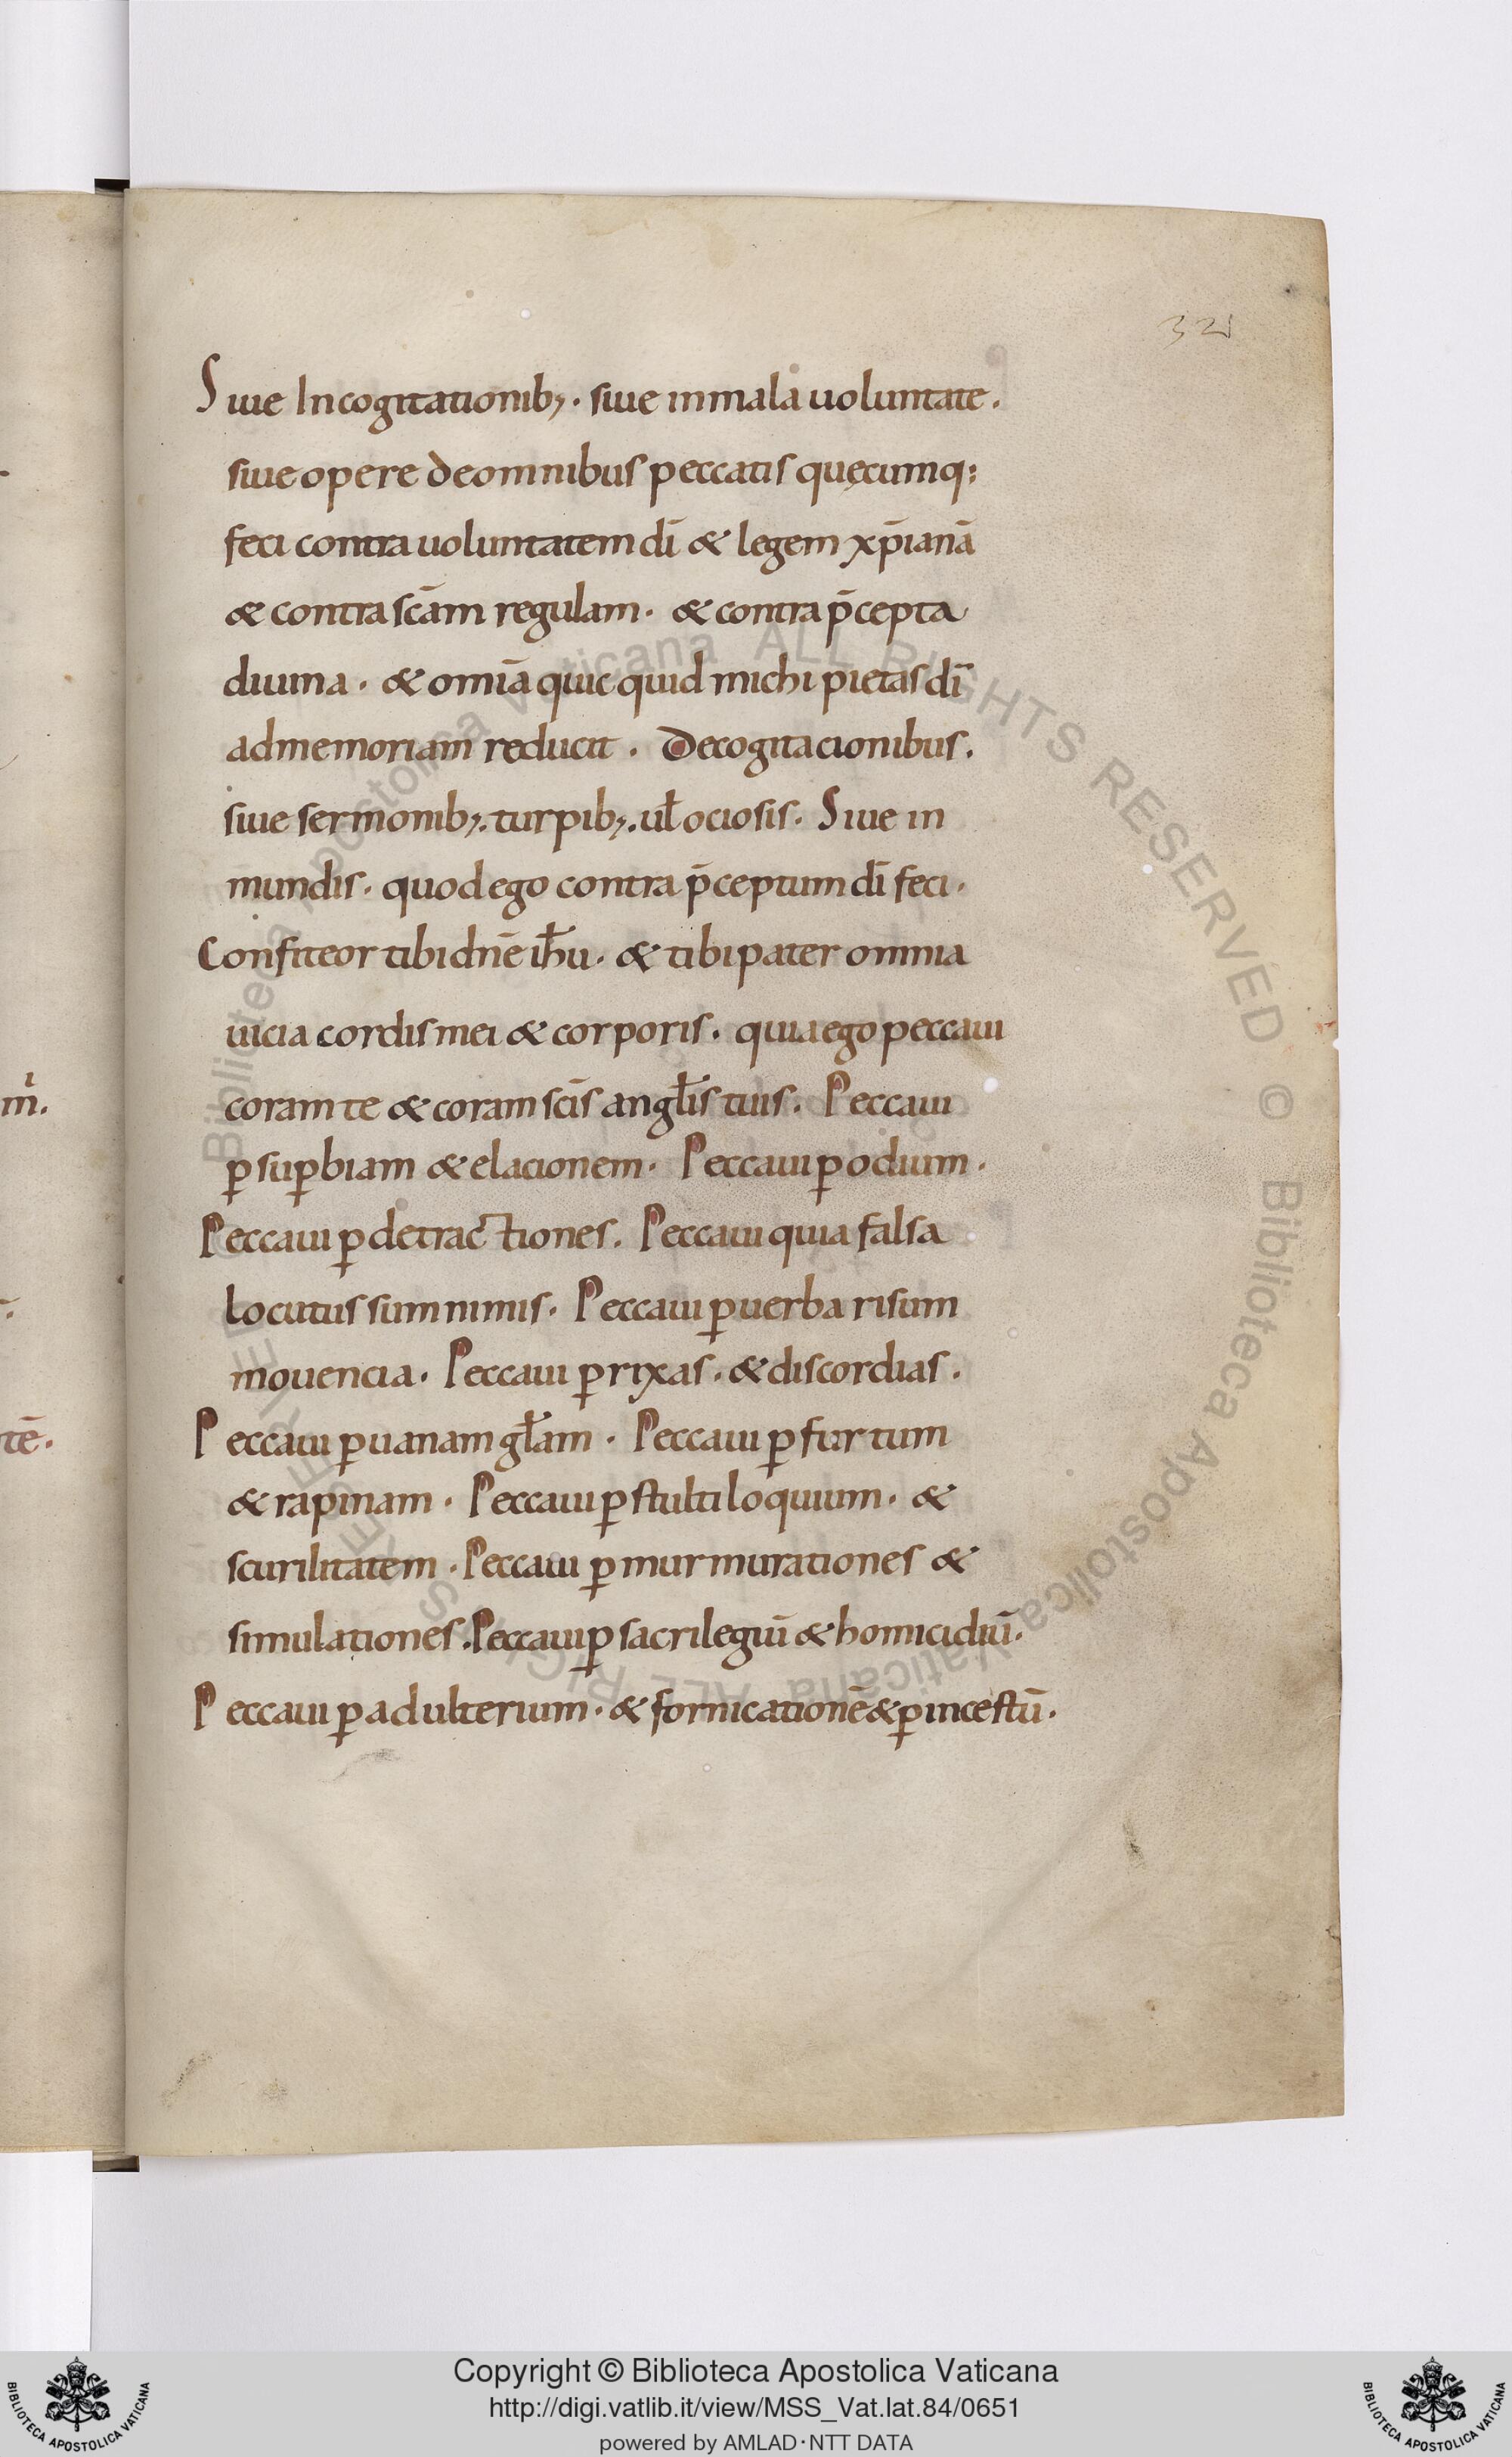 321
Siue Incogitationib;. siue inmala uoluntate.
siue opere deomnibus peccatis quęcumq:
feci contra uoluntatem dī & legem xp̄ianā
& contra scām regulam. & contra p̄cepta
diuina. & omīa quicquid michi pietas dī
admemoriam reducit. Decogitacionibus.
siue sermonib;. turpib;. ul̄ ociosis. Siue in
mundis. quod ego contra p̄ceptum dī feci.
Confiteor tibi dn̄e ih̄u. & tibi pater omnia
uicia cordis mei & corporis. quia ego peccaui
coram te & coram scīs angl̄is tuis. Peccaui
ꝑ suꝑbiam & elacionem. Peccaui ꝑ odium.
Peccaui ꝑ detractiones. Peccaui quia falsa
locutus sum nimis. Peccaui ꝑ uerba risum
mouencia. Peccaui ꝑ rixas. & discordias.
Peccaui ꝑ uanam gl̄am. Peccaui ꝑ furtum
& rapinam. Peccaui ꝑ stultiloquium. &
scurilitatem. Peccaui ꝑ murmurationes &
simulationes. Peccaui ꝑ sacrilegiū & homicidiū.
Peccaui ꝑ adulterium. & fornicationē & ꝑ incestū.
Biblioteca Apostolica Vaticana ALL RIGHTS RESERVED © Biblioteca Apostolica Vaticana ALL RIGHTS RESERVED
Copyright © Biblioteca Apostolica Vaticana
http://digi.vatlib.it/view/MSS_Vat.lat.84/0651
powered by AMLAD·NTT DATA
BIBLIOTECA APOSTOLICA VATICANA
BIBLIOTECA APOSTOLICA VATICANA